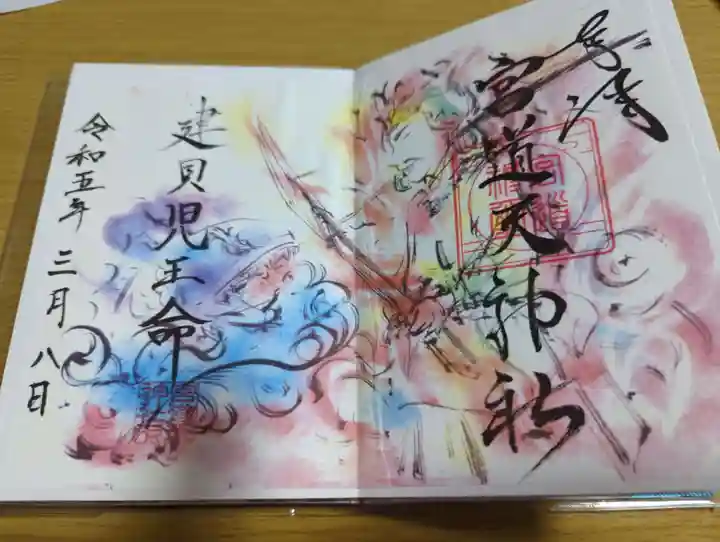 奉拝
宮道天神社
建貝児王命
令和五年 三月八日